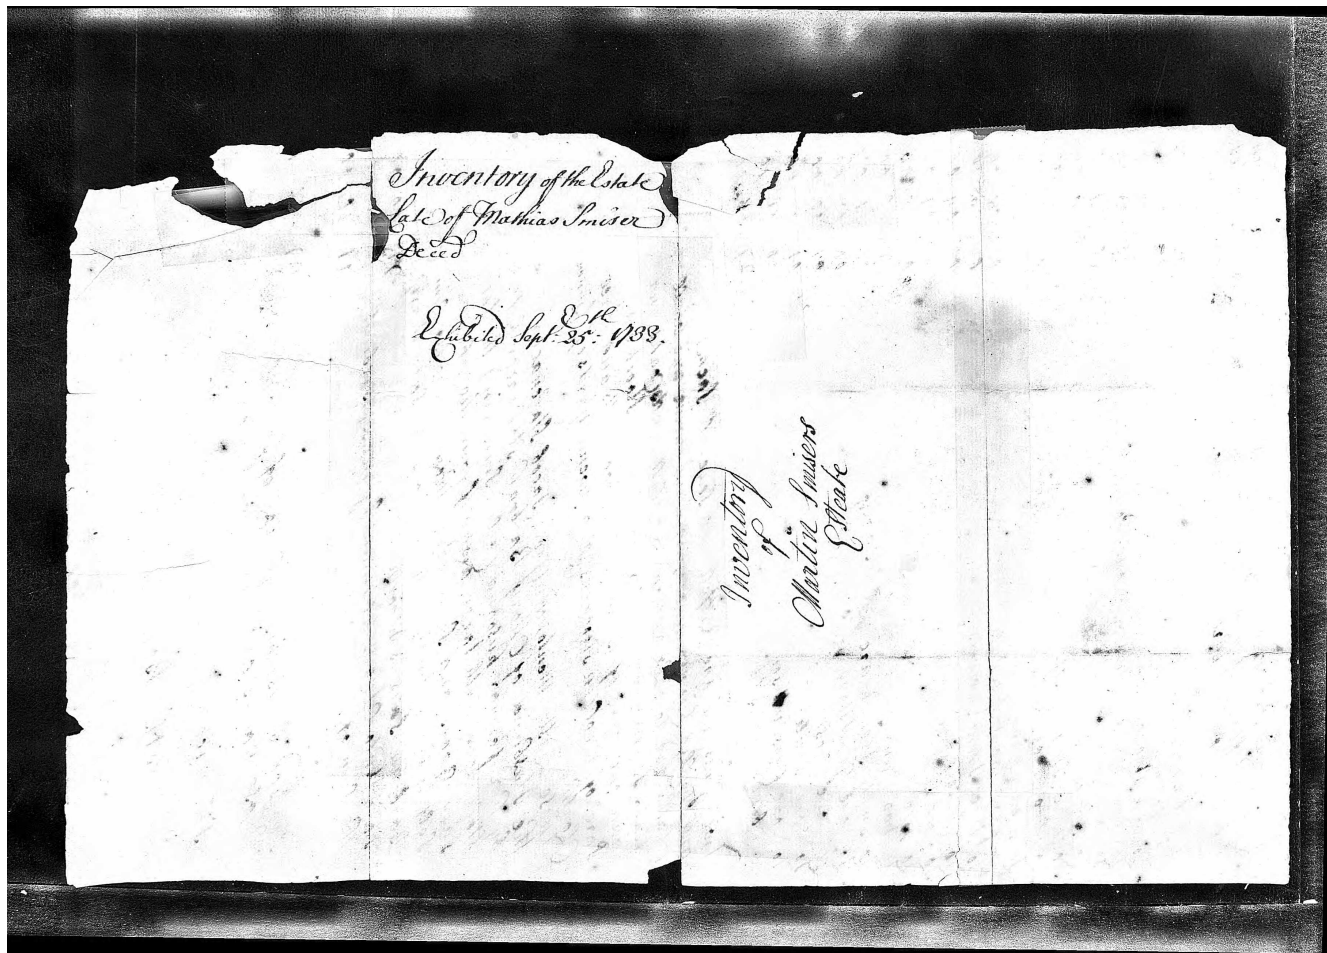 Inventory of the Estate
Late of Mathias Smiser
Deced
Exhibited Sept. 25th: 1733.
Inventory
of
Martin Smisers
Esteate